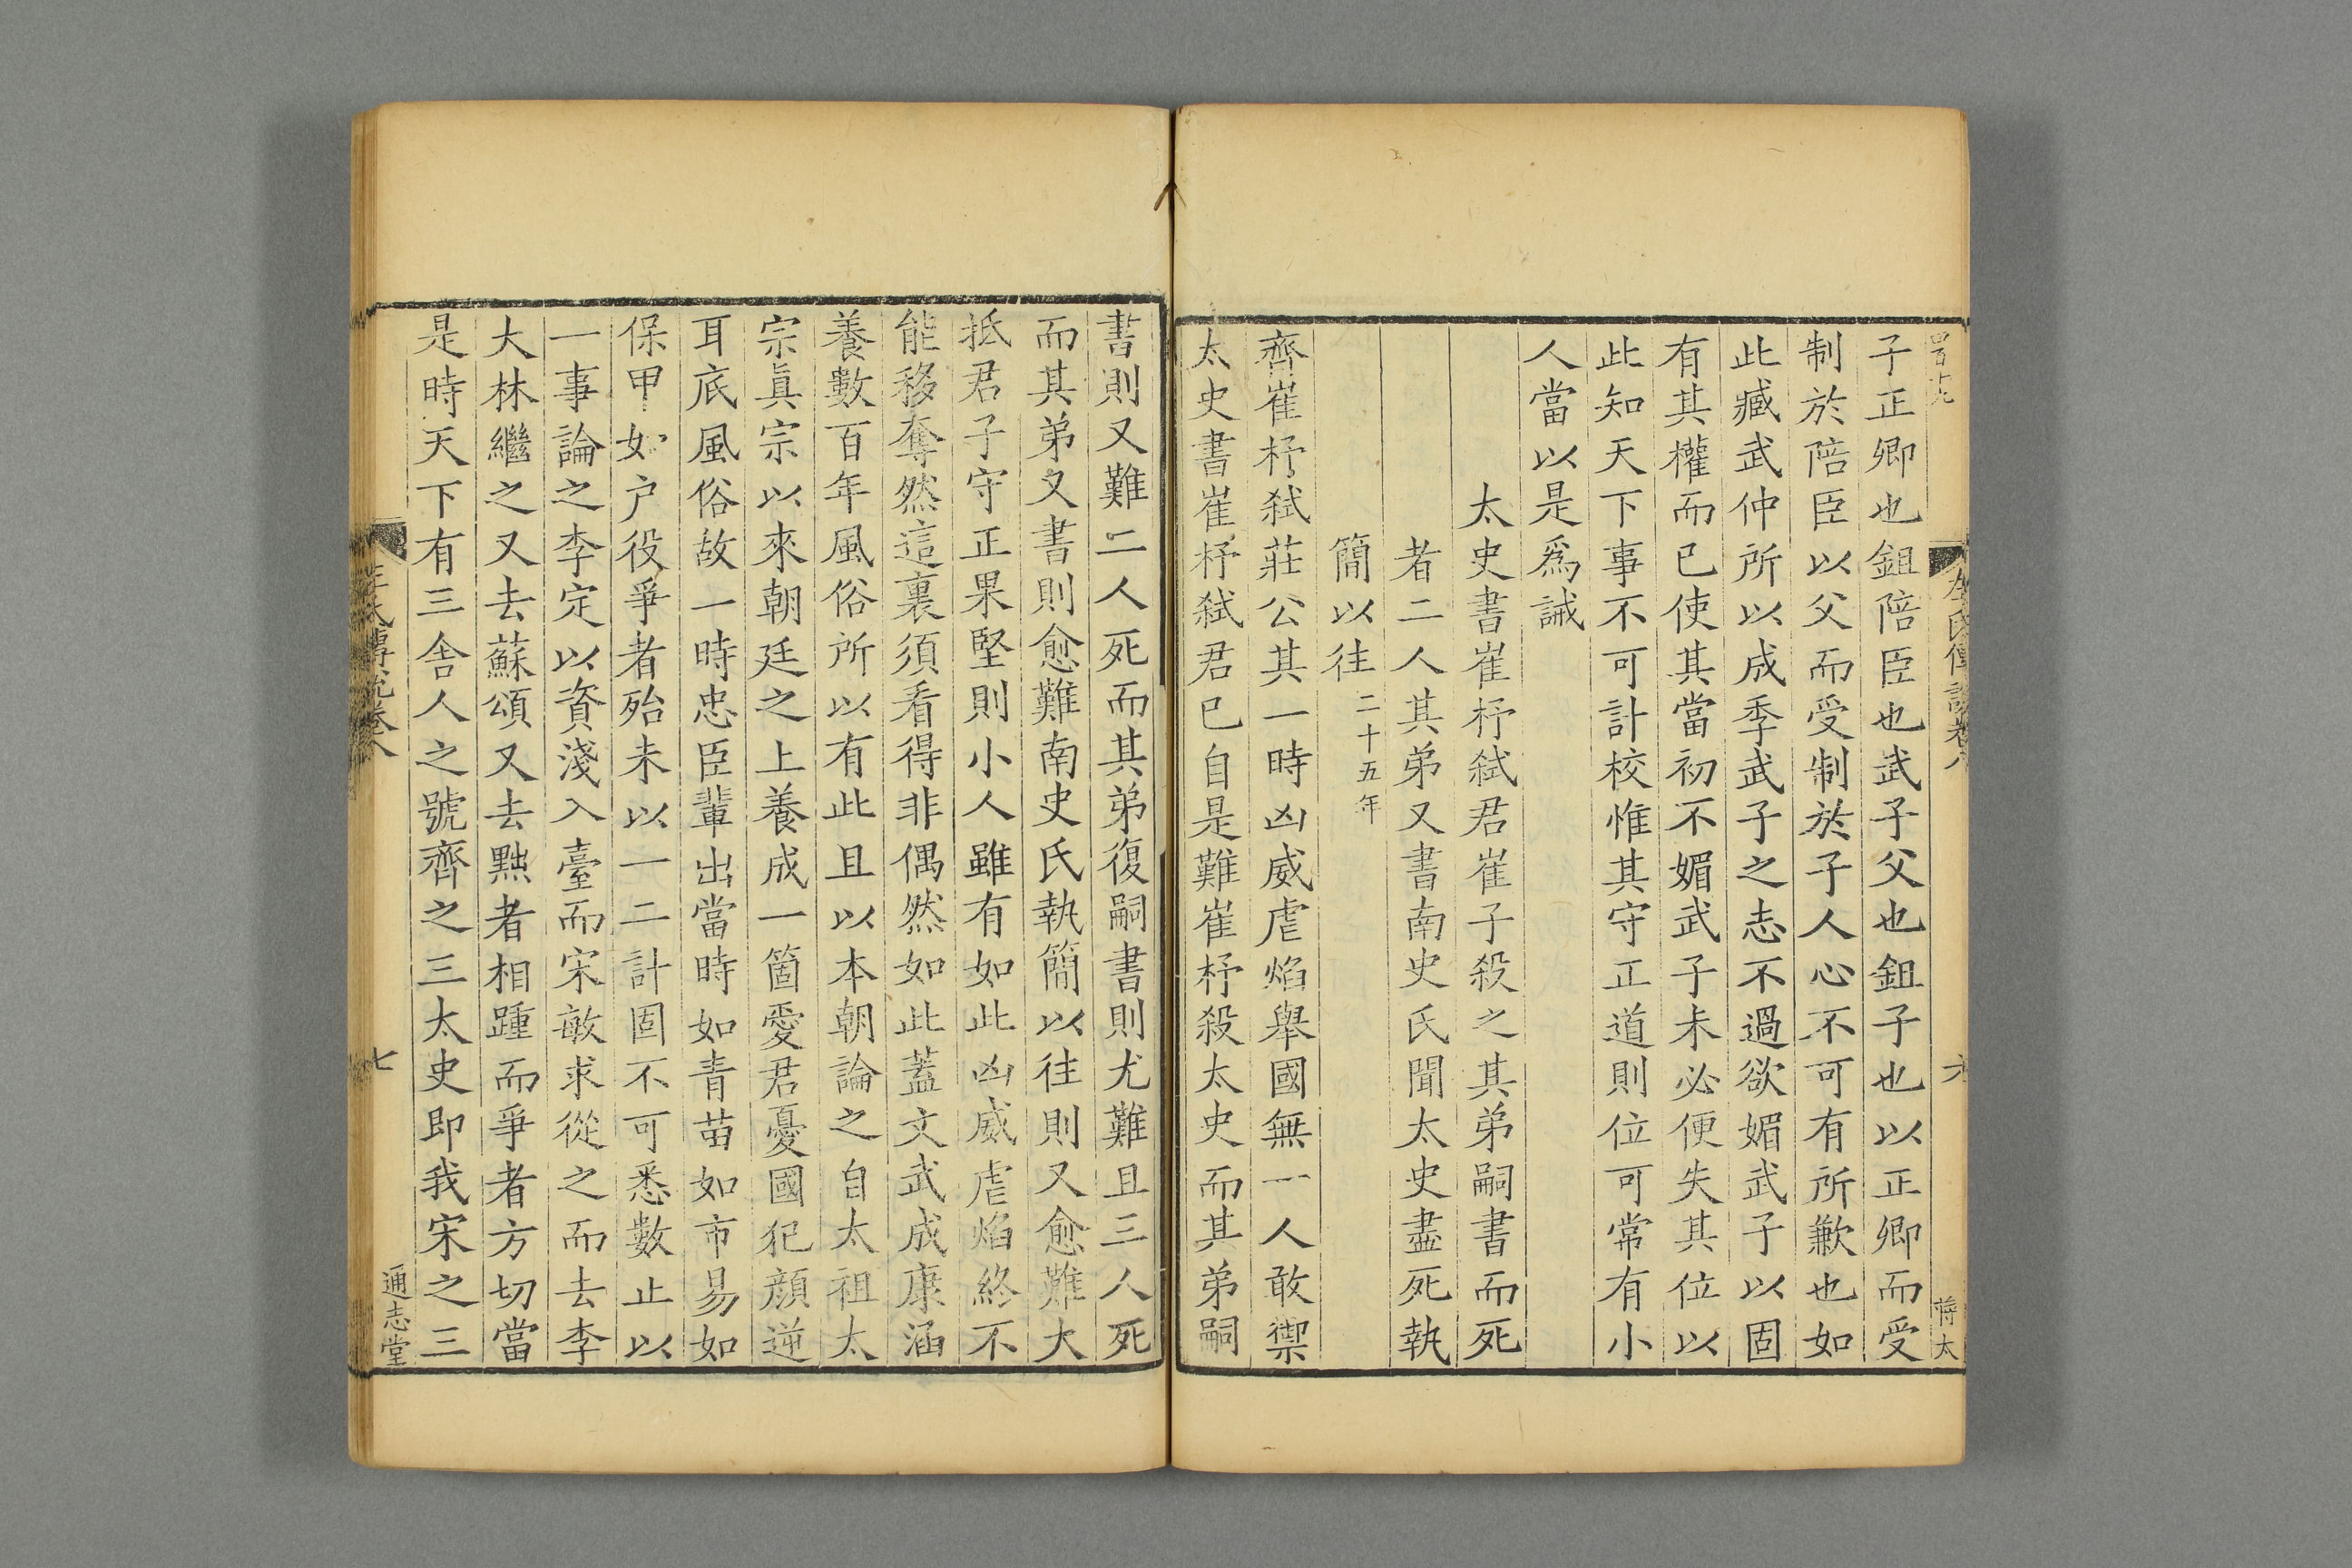 子正卿也鉏陪臣也武子父也鉏子也以正卿而受
制於陪臣以父而受制於子人心不可有所歉也如
此臧武仲所以成季武子之志不過欲媚武子以固
有其權而已使其當初不媚武子未必便失其位以
此知天下事不可計校惟其守正道則位可常有小
人當以是爲誡
太史書崔杼弑君崔子殺之其弟嗣書而死
者二人其弟又書南史氏聞太史盡死執
簡以往二十五年
齊崔杼弑莊公其一時凶威虐焰舉國無一人敢禦
太史書崔杼弑君已自是難崔杼殺太史而其弟嗣
書則又難二人死而其弟復嗣書則尤難且三人死
而其弟又書則愈難南史氏執簡以往則又愈難大
抵君子守正果堅則小人雖有如此凶威虐焰終不
能移奪然這裏須看得非偶然如此蓋文武成康涵
養數百年風俗所以有此且以本朝論之自太祖太
宗眞宗以來朝廷之上養成一箇愛君憂國犯顔逆
耳底風俗故一時忠臣輩出當時如青苗如市易如
保甲如户役爭者殆未以一二計固不可悉數止以
一事論之李定以資淺入臺而宋敏求從之而去李
大林繼之又去蘇頌又去㸃者相踵而爭者方切當
是時天下有三舍人之號齊之三太史即我宋之三
左氏傳説卷八
七
通志堂
左氏傳説卷八
六
蔣太